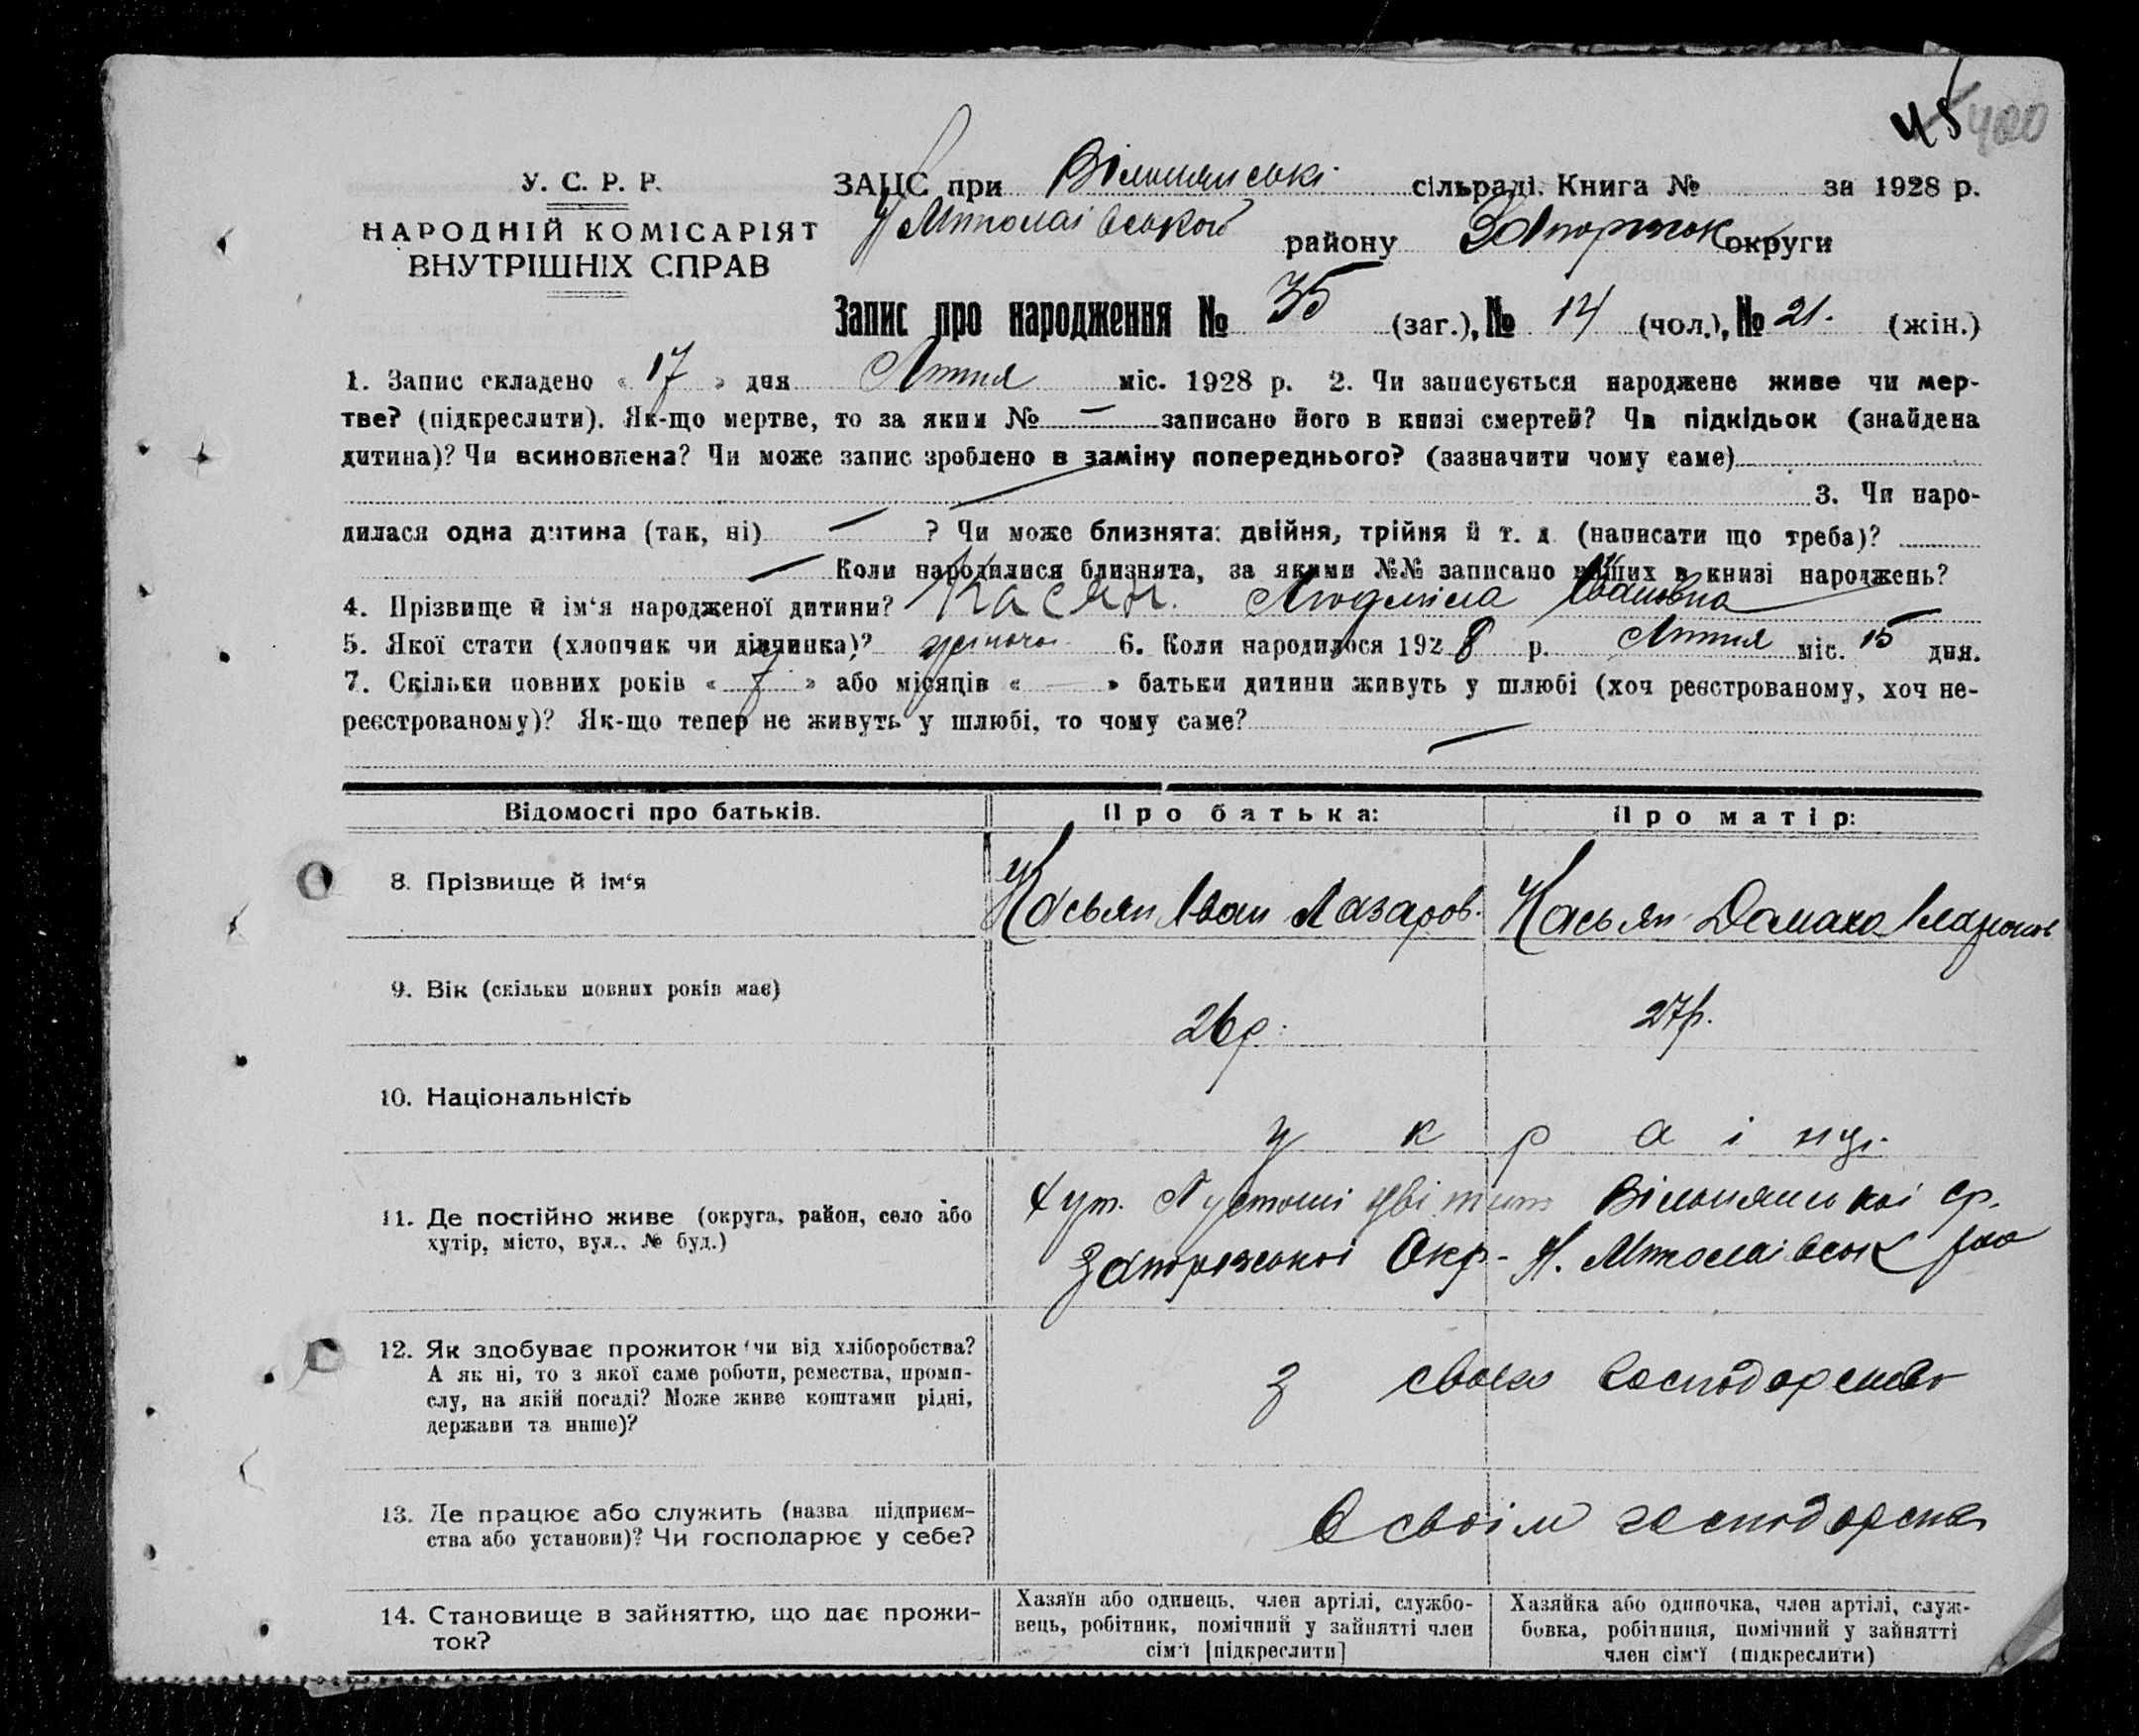 45 420
У. С. Р. Р.
НАРОДНІЙ КОМІСАРІЯТ
ВНУТРІШНІХ СПРАВ
ЗАЦС при сільраді. Книга № за 1928 р.
району Запоріжок округи
Запис про народження № 35 (заг.), № 14 (чол.), № 21. (жін.)
1. Запис складено « 17 » дня Липня міс. 1928 р. 2. Чи записується народжене живе чи мер-
тве? (підкреслити). Як-що мертве, то за яким № — записано його в книзі смертей? Чи підкідьок (знайдена
дитина)? Чи всиновлена? Чи може запис зроблено в заміну попереднього? (зазначити чому саме)
3. Чи наро-
дилася одна дитина (так, ні) — ? Чи може близнята: двійня, трійня й т. д. (написати що треба)?
— Коли народилися близнята, за якими №№ записано инших в книзі народжень?
4. Прізвище й ім‘я народженої дитини? Касян. Людміла Івановна
5. Якої стати (хлопчик чи дівчинка)? жіноча 6. Коли народилося 1928 р. Липня міс. 15 дня.
7. Скільки повних років « 7 » або місяців « — » батьки дитини живуть у шлюбі (хоч реєстрованому, хоч не-
реєстрованому)? Як-що тепер не живуть у шлюбі, то чому саме? —
Відомості про батьків.
Про батька:
Про матір:
8. Прізвище й ім‘я
Касьян Іван Лазаров.
Касьян Домаха
9. Вік (скільки повних років має)
26 р.
27 р.
10. Національність
українці.
11. Де постійно живе (округа, район, село або
хутір, місто, вул., № буд.)
хут. Вільнянської ср.
Запорізької Окр. Н. Миколаівськ
12. Як здобуває прожиток (чи від хліборобства?
А як ні, то з якої саме роботи, ремества, проми-
слу, на якій посаді? Може живе коштами рідні,
держави та инше)?
з свого господарства
13. Де працює або служить (назва підприєм-
ства або установи)? Чи господарює у себе?
в своїм господарстві
14. Становище в зайняттю, що дає прожи-
ток?
Хазяїн або одинець, член артілі, службо-
вець, робітник, помічний у зайнятті член
сім‘ї [підкреслити]
Хазяйка або одиночка, член артілі, служ-
бовка, робітниця, помічний у зайнятті
член сім‘ї (підкреслити)